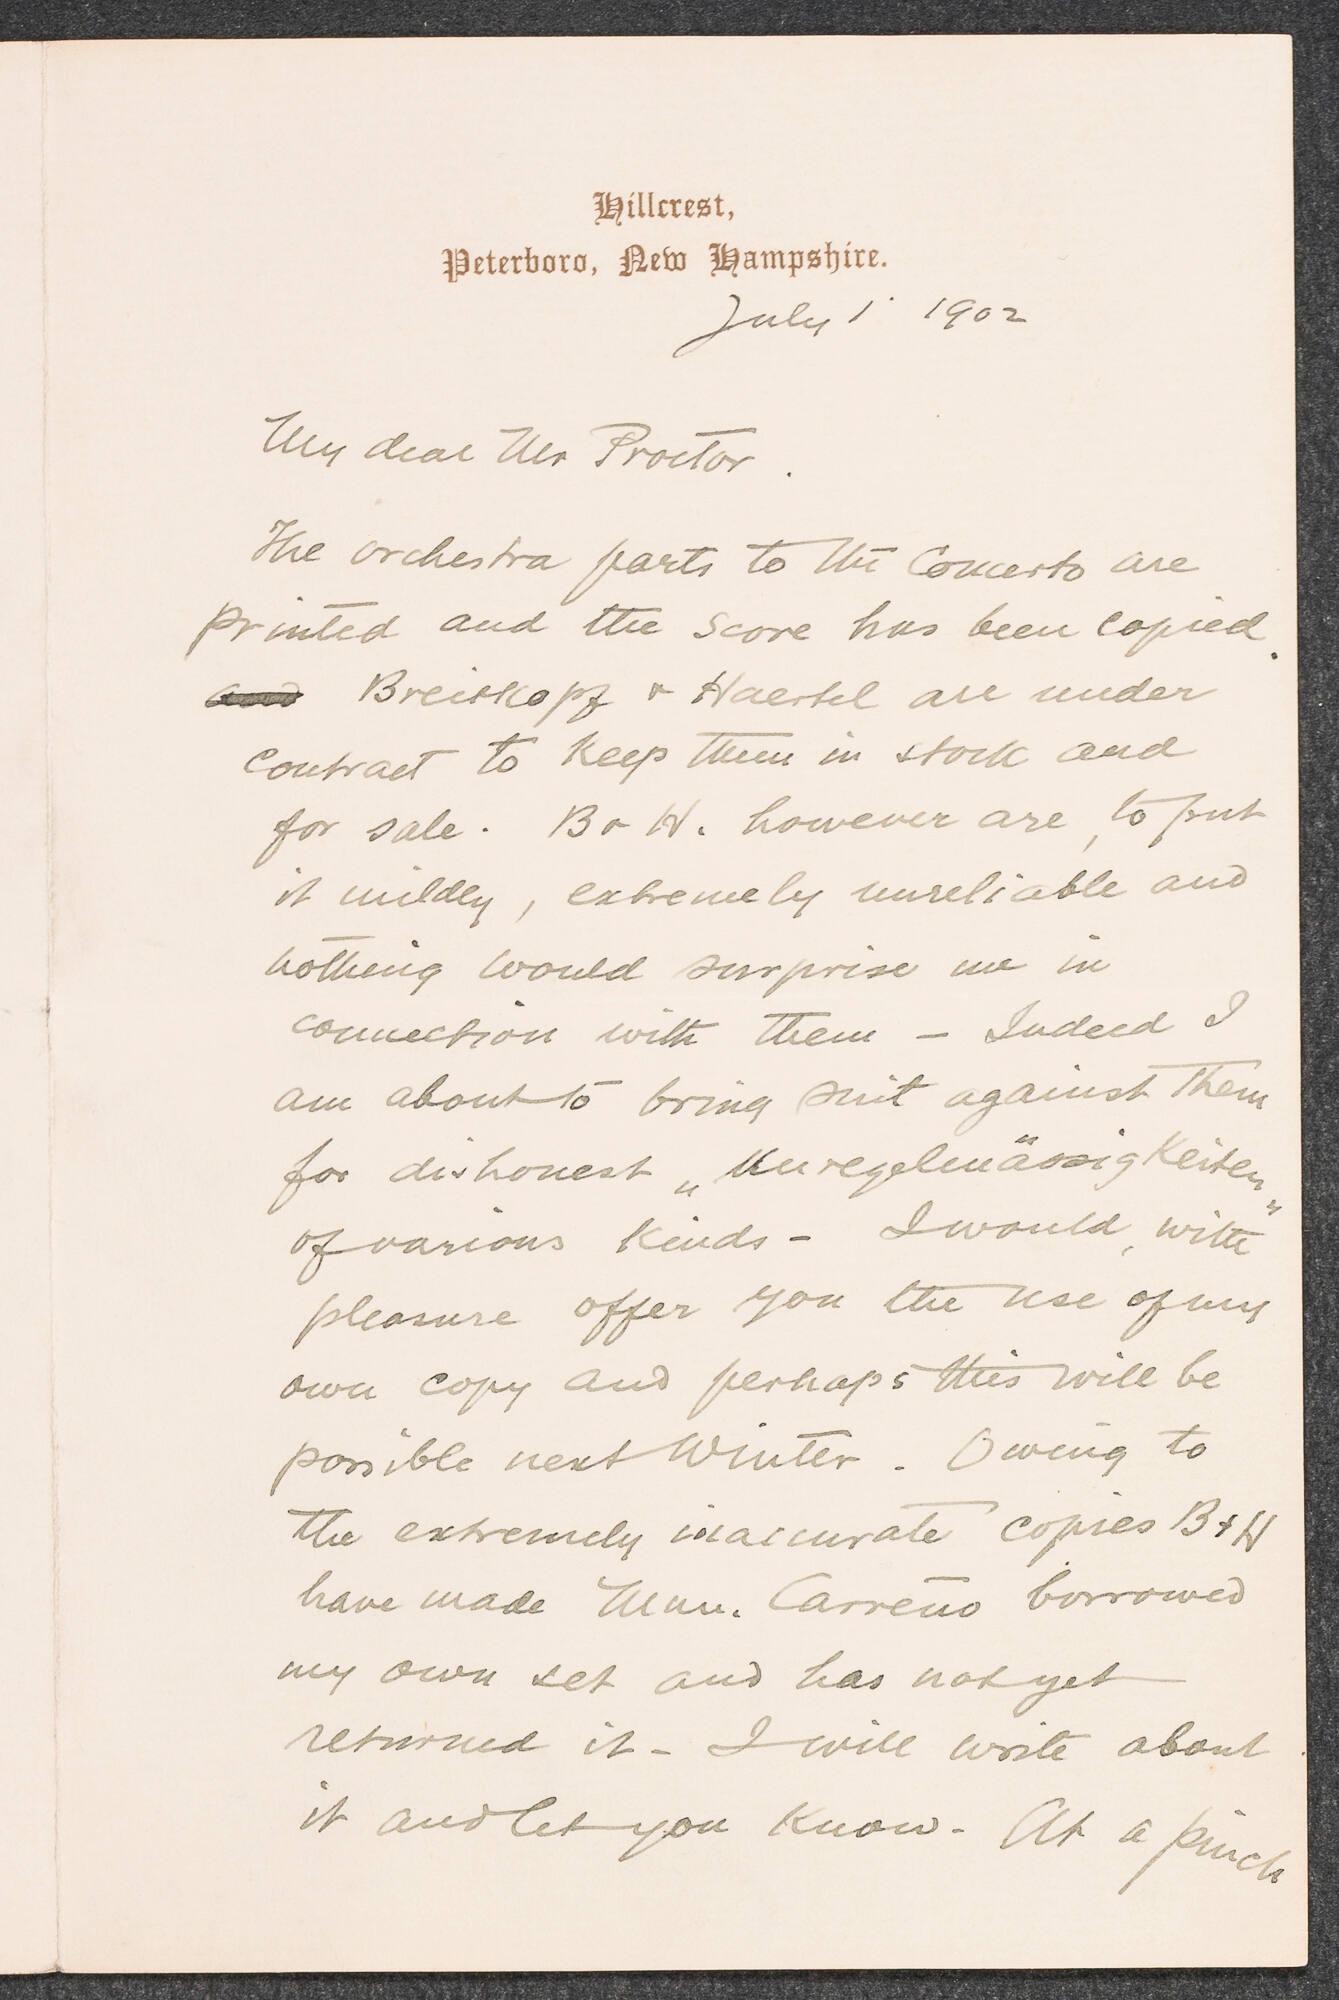 Hillcrest,
Peterboro, New Hampshire.
July 1. 1902
My dear Mr Proctor.
The orchestra parts to the Concerto are
printed and the score has been copied.
and Breitkopf & Haertel are under
contract to keep them in stock and
for sale. B & H. however are, to put
it mildly, extremely unreliable and
nothing would surprise me in
connection with them – Indeed I
am about to bring suit against them
for dishonest „Unregelmässigkeiten"
of various kinds – I would, with
pleasure offer you the use of my
own copy and perhaps this will be
possible next Winter. Owing to
the extremely inaccurate copies B & H
have made Mme. Carreño borrowed
my own set and has not yet
returned it – I will write about
it and let you know – At a pinch